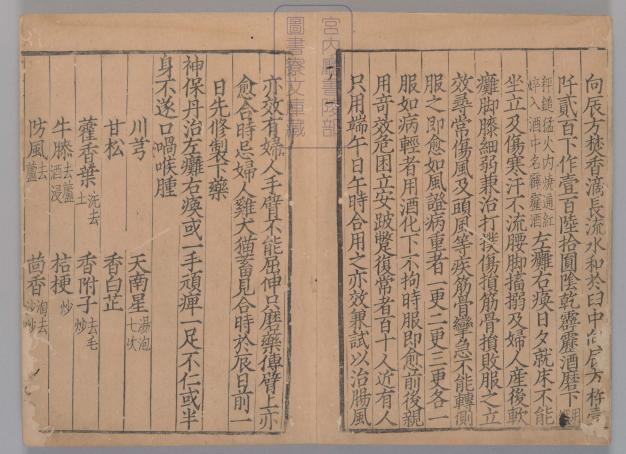 向辰方焚香滴長流水和於臼中
阡貳百下作壹百陸拾圓陰乾霹靂酒磨下
秤鎚猛火内燒通紅
淬入酒中名霹靂酒
左癱右瘓日夕就床不能
坐立及傷寒汗不流腰脚搐搦及婦人産後軟
癱脚膝細弱兼治打撲傷損筋骨損敗服之立
效尋常傷風及頭風等疾筋骨攣急不能轉側
服之即愈如風證病重者一更二更三更各一
服如病輕者用酒化下不拘時服即愈前後親
用奇效危困立安跛躄復常者百十人近有人
只用端午日午時合用之亦效兼試以治腸風
亦效有婦人手臂不能屈伸只磨藥摶臂上亦
愈合時忌婦人雞犬猫畜見合時於辰日前一
日先修製下藥
神保丹治左癱右瘓或一手頑痺一足不仁或半
身不遂口喎喉腫
川芎
天南星湯泡七次
甘松
香白芷
藿香葉洗去土
香附子去毛炒
牛膝去蘆酒浸
桔梗炒
防風去蘆
茴香淘去沙炒
宮内廳書陵部
圖書寮文庫藏